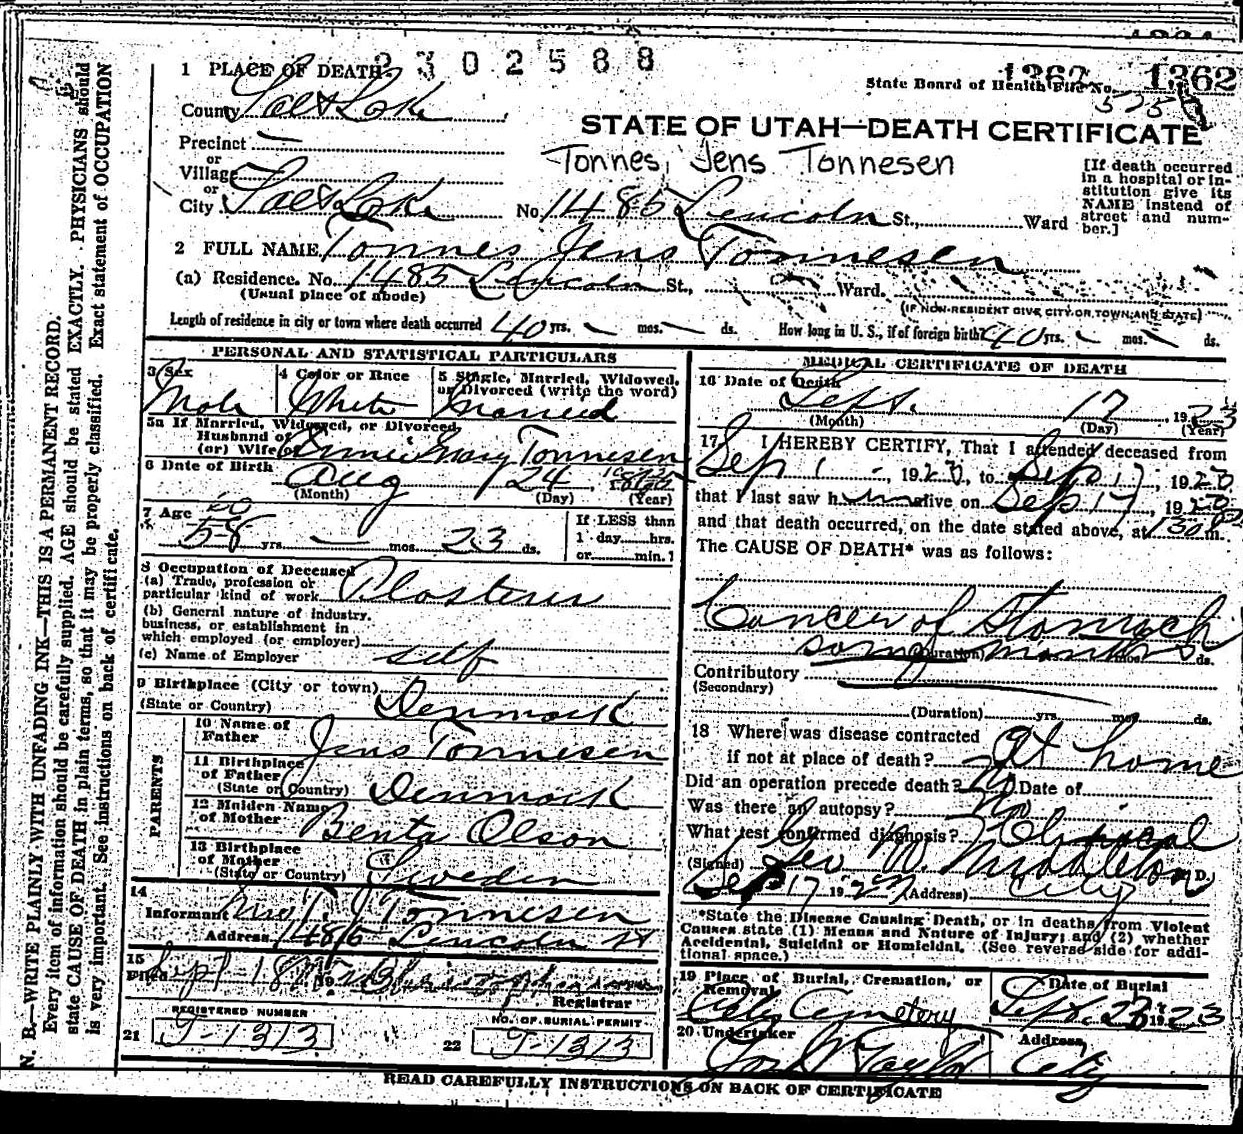 2302588
1 PLACE OF DEATH
State Board of Health File No. 1362 1362
County Salt Lake
STATE OF UTAH—DEATH CERTIFICATE
Precinct —
Tonnes, Jens Tonnesen
or
Village
or
City Salt Lake No. 1485 Lincoln St., Ward
[If death occurred
in a hospital or in-
stitution give its
NAME instead of
street and num-
ber.]
2 FULL NAME Tonnes Jens Tonnesen
(a) Residence. No. 1485 Lincoln St., Ward.
(Usual place of abode)
(IF NON-RESIDENT GIVE CITY OR TOWN AND STATE)
Length of residence in city or town where death occurred 40 yrs. — mos. — ds. How long in U. S., if of foreign birth? 40 yrs. — mos. — ds.
PERSONAL AND STATISTICAL PARTICULARS
3 Sex
Male
4 Color or Race
White
5 Single, Married, Widowed,
or Divorced (write the word)
Married
5a If Married, Widowed, or Divorced,
Husband of
(or) Wife of Mary Tonnesen
6 Date of Birth Aug 24
(Month) (Day) (Year)
7 Age
58 yrs. — mos. 23 ds.
If LESS than
1 day.....hrs.
or.....min.?
8 Occupation of Deceased
(a) Trade, profession or
particular kind of work Plasterer
(b) General nature of industry,
business, or establishment in
which employed (or employer)
(c) Name of Employer self
9 Birthplace (City or town)
(State or Country) Denmark
PARENTS
10 Name of
Father Jens Tonnesen
11 Birthplace
of Father
(State or Country) Denmark
12 Maiden Name
of Mother Benta Olson
13 Birthplace
of Mother
(State or Country) Sweden
14
Informant Mrs T. J. Tonnesen
Address 1485 Lincoln St
15
Filed Sept 18 19
Registrar
REGISTERED NUMBER
21 T-1313
NO. OF BURIAL PERMIT
22 T-1313
MEDICAL CERTIFICATE OF DEATH
16 Date of Death
Sept. 17, 1923
(Month) (Day) (Year)
17 I HEREBY CERTIFY, That I attended deceased from
Sep 1, 1923, to Sep 17, 1923
that I last saw him alive on Sep 17, 1923
and that death occurred, on the date stated above, at 130 m.
The CAUSE OF DEATH* was as follows:
Cancer of Stomach
some months
(Duration) mos. ds.
Contributory
(Secondary)
(Duration) yrs. mos. ds.
18 Where was disease contracted
if not at place of death? at home
Did an operation precede death? No Date of
Was there an autopsy? No
What test confirmed diagnosis? Clinical
(Signed) Geo W. Middleton M. D.
Sep 17 1923 (Address) City
*State the Disease Causing Death, or in deaths from Violent
Causes state (1) Means and Nature of Injury; and (2) whether
Accidental, Suicidal or Homicidal. (See reverse side for addi-
tional space.)
19 Place of Burial, Cremation, or
Removal
City Cemetery
Date of Burial
Sept. 1923
20 Undertaker
Jos Wm Taylor
Address
City
READ CAREFULLY INSTRUCTIONS ON BACK OF CERTIFICATE
N. B.—WRITE PLAINLY WITH UNFADING INK—THIS IS A PERMANENT RECORD.
Every item of information should be carefully supplied. AGE should be stated EXACTLY. PHYSICIANS should
state CAUSE OF DEATH in plain terms, so that it may be properly classified. Exact statement of OCCUPATION
is very important. See instructions on back of certificate.